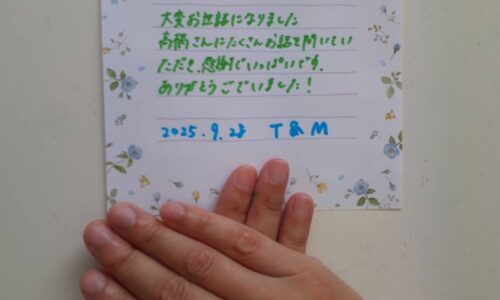 大変お世話になりました
高橋さんにたくさんお話を聞いてい
ただき、感謝でいっぱいです。
ありがとうございました!
2025.9.28 T&M